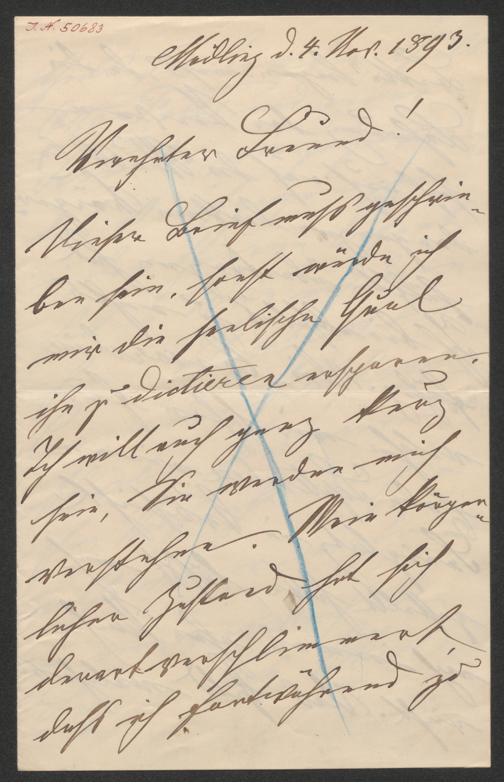 J. N. 50683
Mödling d. 4. Nov. 1893.
Verehrter Freund!
Dieser Brief muss geschrie-
ben sein, sonst würde ich
mir die seelische Qual
ihn zu dictieren ersparen.
Ich will auch ganz kurz
sein, Sie werden mich
verstehen. Mein körper-
licher Zustand hat sich
derart verschlimmert,
dass ich fortwährend zu